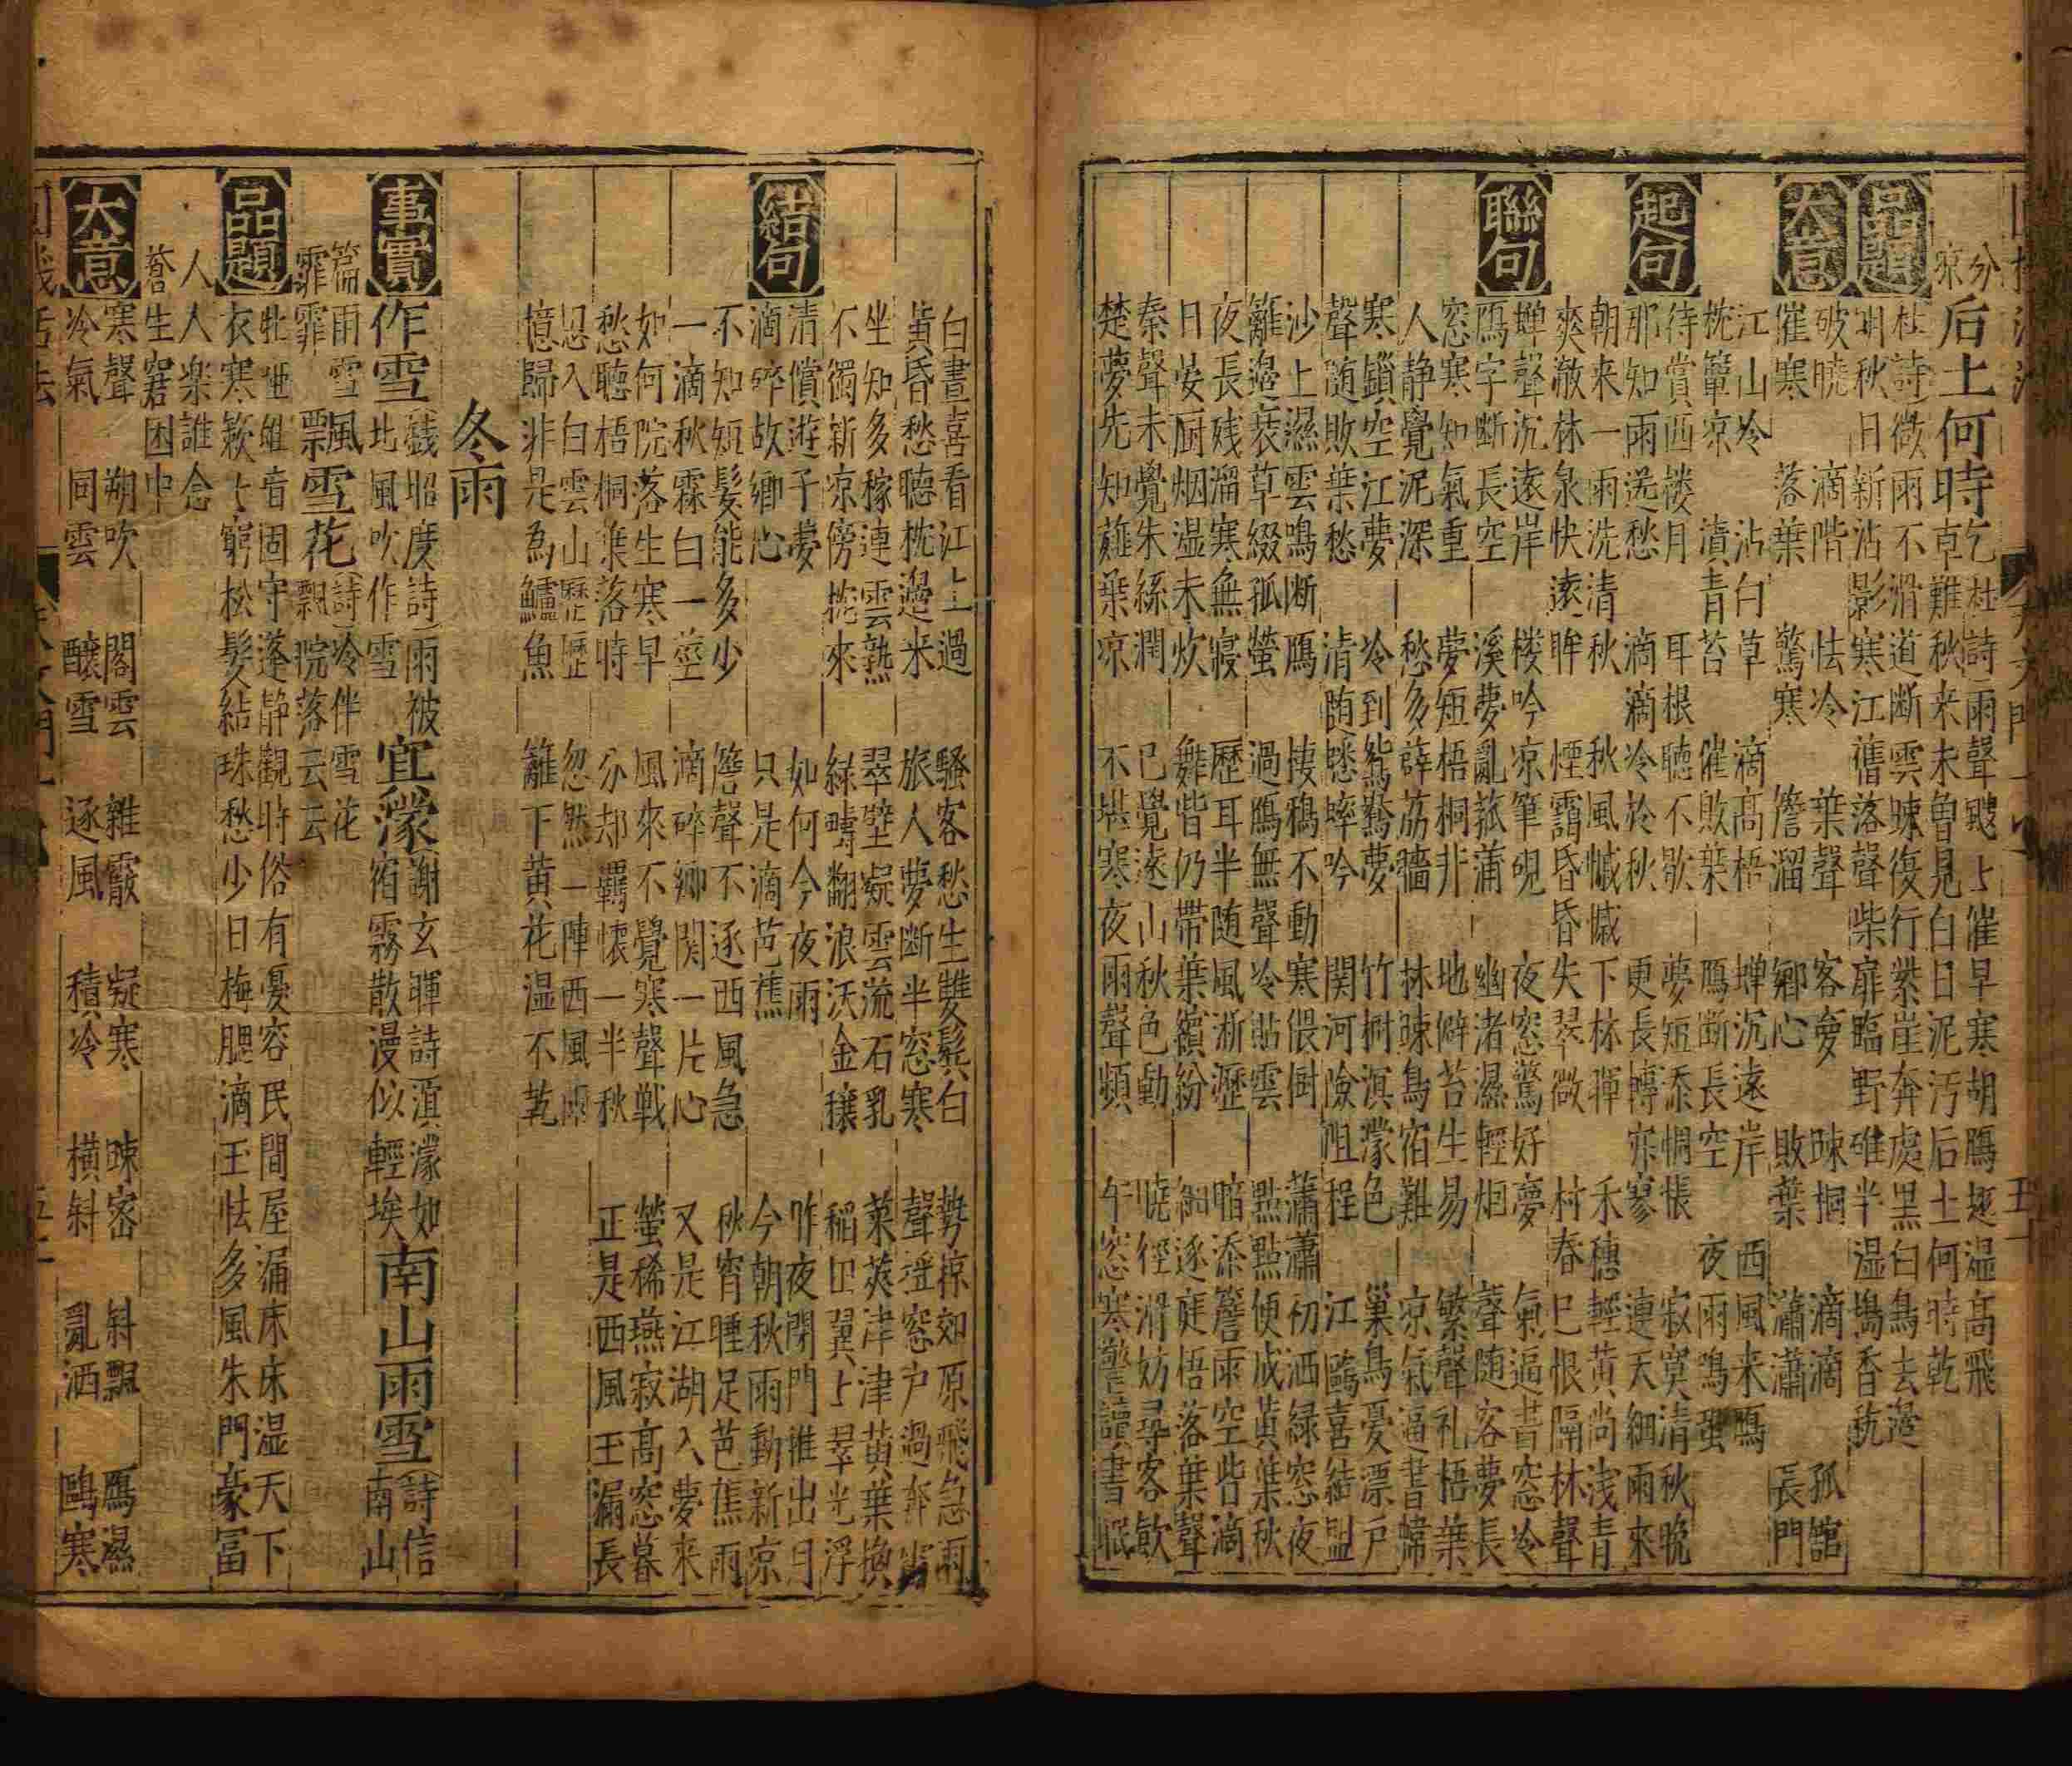 分
凉
后土何時
乞杜詩雨聲颼〻催早寒胡鴈逐湿高飛
草難秋来未曽見白日泥汚后土何時乾
品題
杜詩微雨不滑道断雲踈復行紫崖奔處黒白鳥去邉
明秋日新沾影寒江舊落聲柴扉臨野碓半湿搗香秔
大意
破曉 滴階 怯冷 葉聲 客夢 踈桐 滴滴 孤舘
催寒 落葉 驚寒 簷溜 鄉心 敗葉 瀟瀟 長門
江山冷 沾白草 滴高梧 蝉沉遠岸 西風来鴈
枕簟凉 漬青苔 催敗葉 鴈断長空 夜雨鳴蛩
起句
待賞西楼月 耳根聴不歇 夢短添惆悵 寂寞清秋晚
那知雨送愁 滴滴冷於秋 更長轉寂寥 連天細雨來
朝来一雨洗清秋 秋風慽慽下林 禾穗輕黄尚浅青
爽澈林泉快遠眸 煙靄昏昏失翠微 村舂已恨隔林聲
聯句
蝉聲沉遠岸 楼吟凉筆硯 夜窓驚好夢 氣逼書窓冷
鴈字断長空 溪夢亂菰蒲 幽渚濕輕烟 聲随客夢長
窓寒知氣重 夢短梧桐井 地僻苔生易 繁聲礼梧葉
人静覺泥深 愁多薜荔牆 林踈鳥宿難 凉氣逼書幃
寒鎖空江夢 冷到鴛鴦夢 竹樹溟濛色 巢鳥憂漂戸
聲随敗葉愁 清随蟋蟀吟 関河險阻程 江鷗喜結盟
沙上濕雲鳴断鴈 捿鴉不動寒偎樹 蕭蕭初洒緑窓夜
籬邉衰草綴孤螢 過鴈無聲冷貼雲 點點便成黄葉秋
夜長残溜寒無寝 歷耳半随風淅瀝 暗添簷雨空堦滴
日晏厨烟湿未炊 舞堦仍帶葉繽紛 細逐庭梧落葉聲
秦聲未覺朱絲潤 已覺遠山秋色動 曉徑滑妨尋客飲
楚夢先知薤葉凉 不堪寒夜雨聲頻 午窓寒警讀書眠
白晝喜看江上過 騷客愁生雙鬂白 勢掠如原飛急雨
黄昏愁聴枕邉来 旅人夢断半窓寒 聲澄窓戸過奔雷
坐知多稼連雲熟 翠壁凝雲流石乳 菜莢津津黄葉換
不獨新凉傍枕來 緑疇翻浪沃金穰 稲田翼〻翠光浮
結句
清償遊子夢 如何今夜雨 昨夜閉門推出月
滴碎故鄉心 只是滴芭蕉 今朝秋雨動新凉
不知短髮能多少 簷聲不逐西風急 秋宵睡足芭蕉雨
一滴秋霖白一莖 滴碎鄉関一片心 又是江湖入夢来
如何院落生寒早 風來不覺寒聲戦 螢稀燕寂高窓暮
愁聴梧桐葉落時 分却羈懐一半秋 正是西風玉漏長
思入白雲山歷歷 忽然一陣西風雨
憶歸非是為鱸魚 籬下黄花湿不乾
冬雨
事實
作雪
戲昭度詩雨被
北風吹作雪
宜濛
謝玄暉詩溟濛如
宿霧散漫似輕埃
南山雨雪
詩信
南山
篇雨雪
霏霏
風
票
雪花
詩冷伴雪花
飄院落云云
品題
牝蛭雌音固守蓬静觀時俗有憂容民間屋漏床床湿天下
衣寒欵〻窮松髮結珠愁少日梅腮滴玉怯多風朱門豪冨
人人楽誰念
蒼生窘困中
大意
寒聲 朔吹 閣雲 雜霰 凝寒 踈密 斜飄 鴈濕
冷氣 同雲 釀雪 逐風 積冷 横斜 亂洒 鷗寒